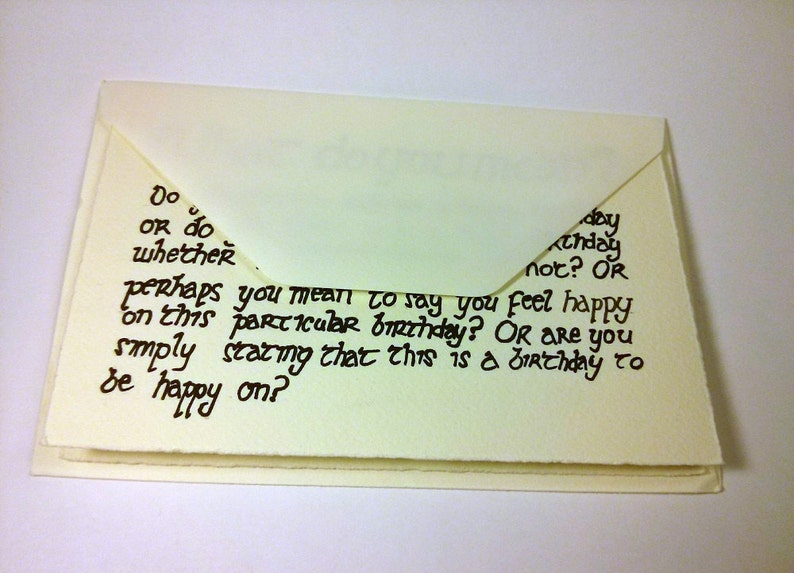 do you mean
Do
or do
whether not? Or
perhaps you mean to say you feel happy
on this particular birthday? Or are you
simply stating that this is a birthday to
be happy on?